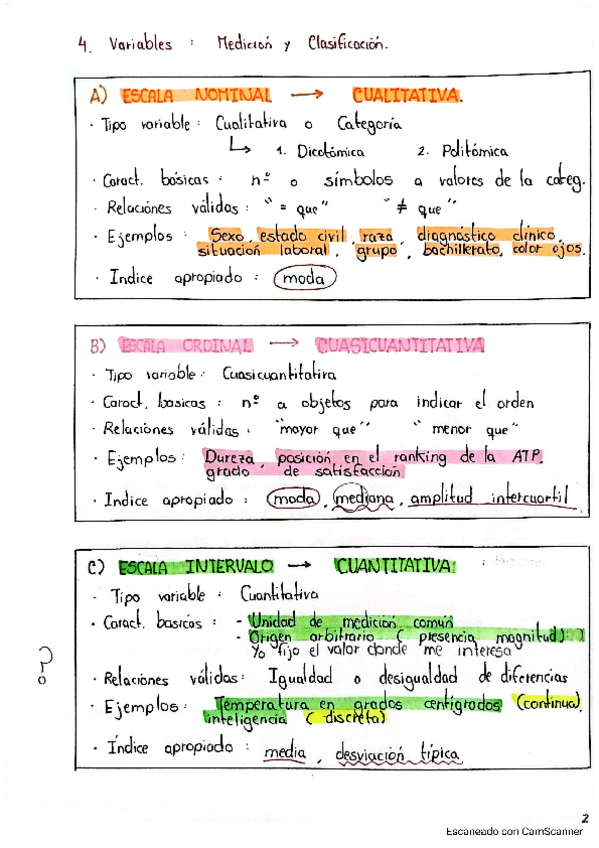 4. Variables : Medición y Clasificación.
A) ESCALA NOMINAL → CUALITATIVA.
· Tipo variable : Cualitativa o Categoría
↳ 1. Dicotómica 2. Politómica
· Caract. básicas : nº o símbolos a valores de la categ.
· Relaciónes válidas : " = que " " ≠ que "
· Ejemplos : Sexo, estado civil, raza, diagnóstico clínico,
situación laboral, grupo, bachillerato, color ojos.
· Índice apropiado : moda
B) ESCALA ORDINAL → CUASICUANTITATIVA
· Tipo variable : Cuasicuantitativa
· Caract. basicas : nº a objetos para indicar el orden
· Relaciones válidas : "mayor que" "menor que"
· Ejemplos : Dureza, posición en el ranking de la ATP.
grado de satisfacción
· Indice apropiado : moda, mediana, amplitud intercuartil.
C) ESCALA INTERVALO → CUANTITATIVA:
· Tipo variable : Cuantitativa
· Caract. basicas : - Unidad de medición común
- Origen arbitrario ( presencia magnitud)
Yo fijo el valor donde me interesa
?
· Relaciónes válidas : Igualdad o desigualdad de diferencias
· Ejemplos : Temperatura en grados centígrados (continua).
inteligencia ( discreta)
· Índice apropiado : media, desviación típica
2
Escaneado con CamScanner